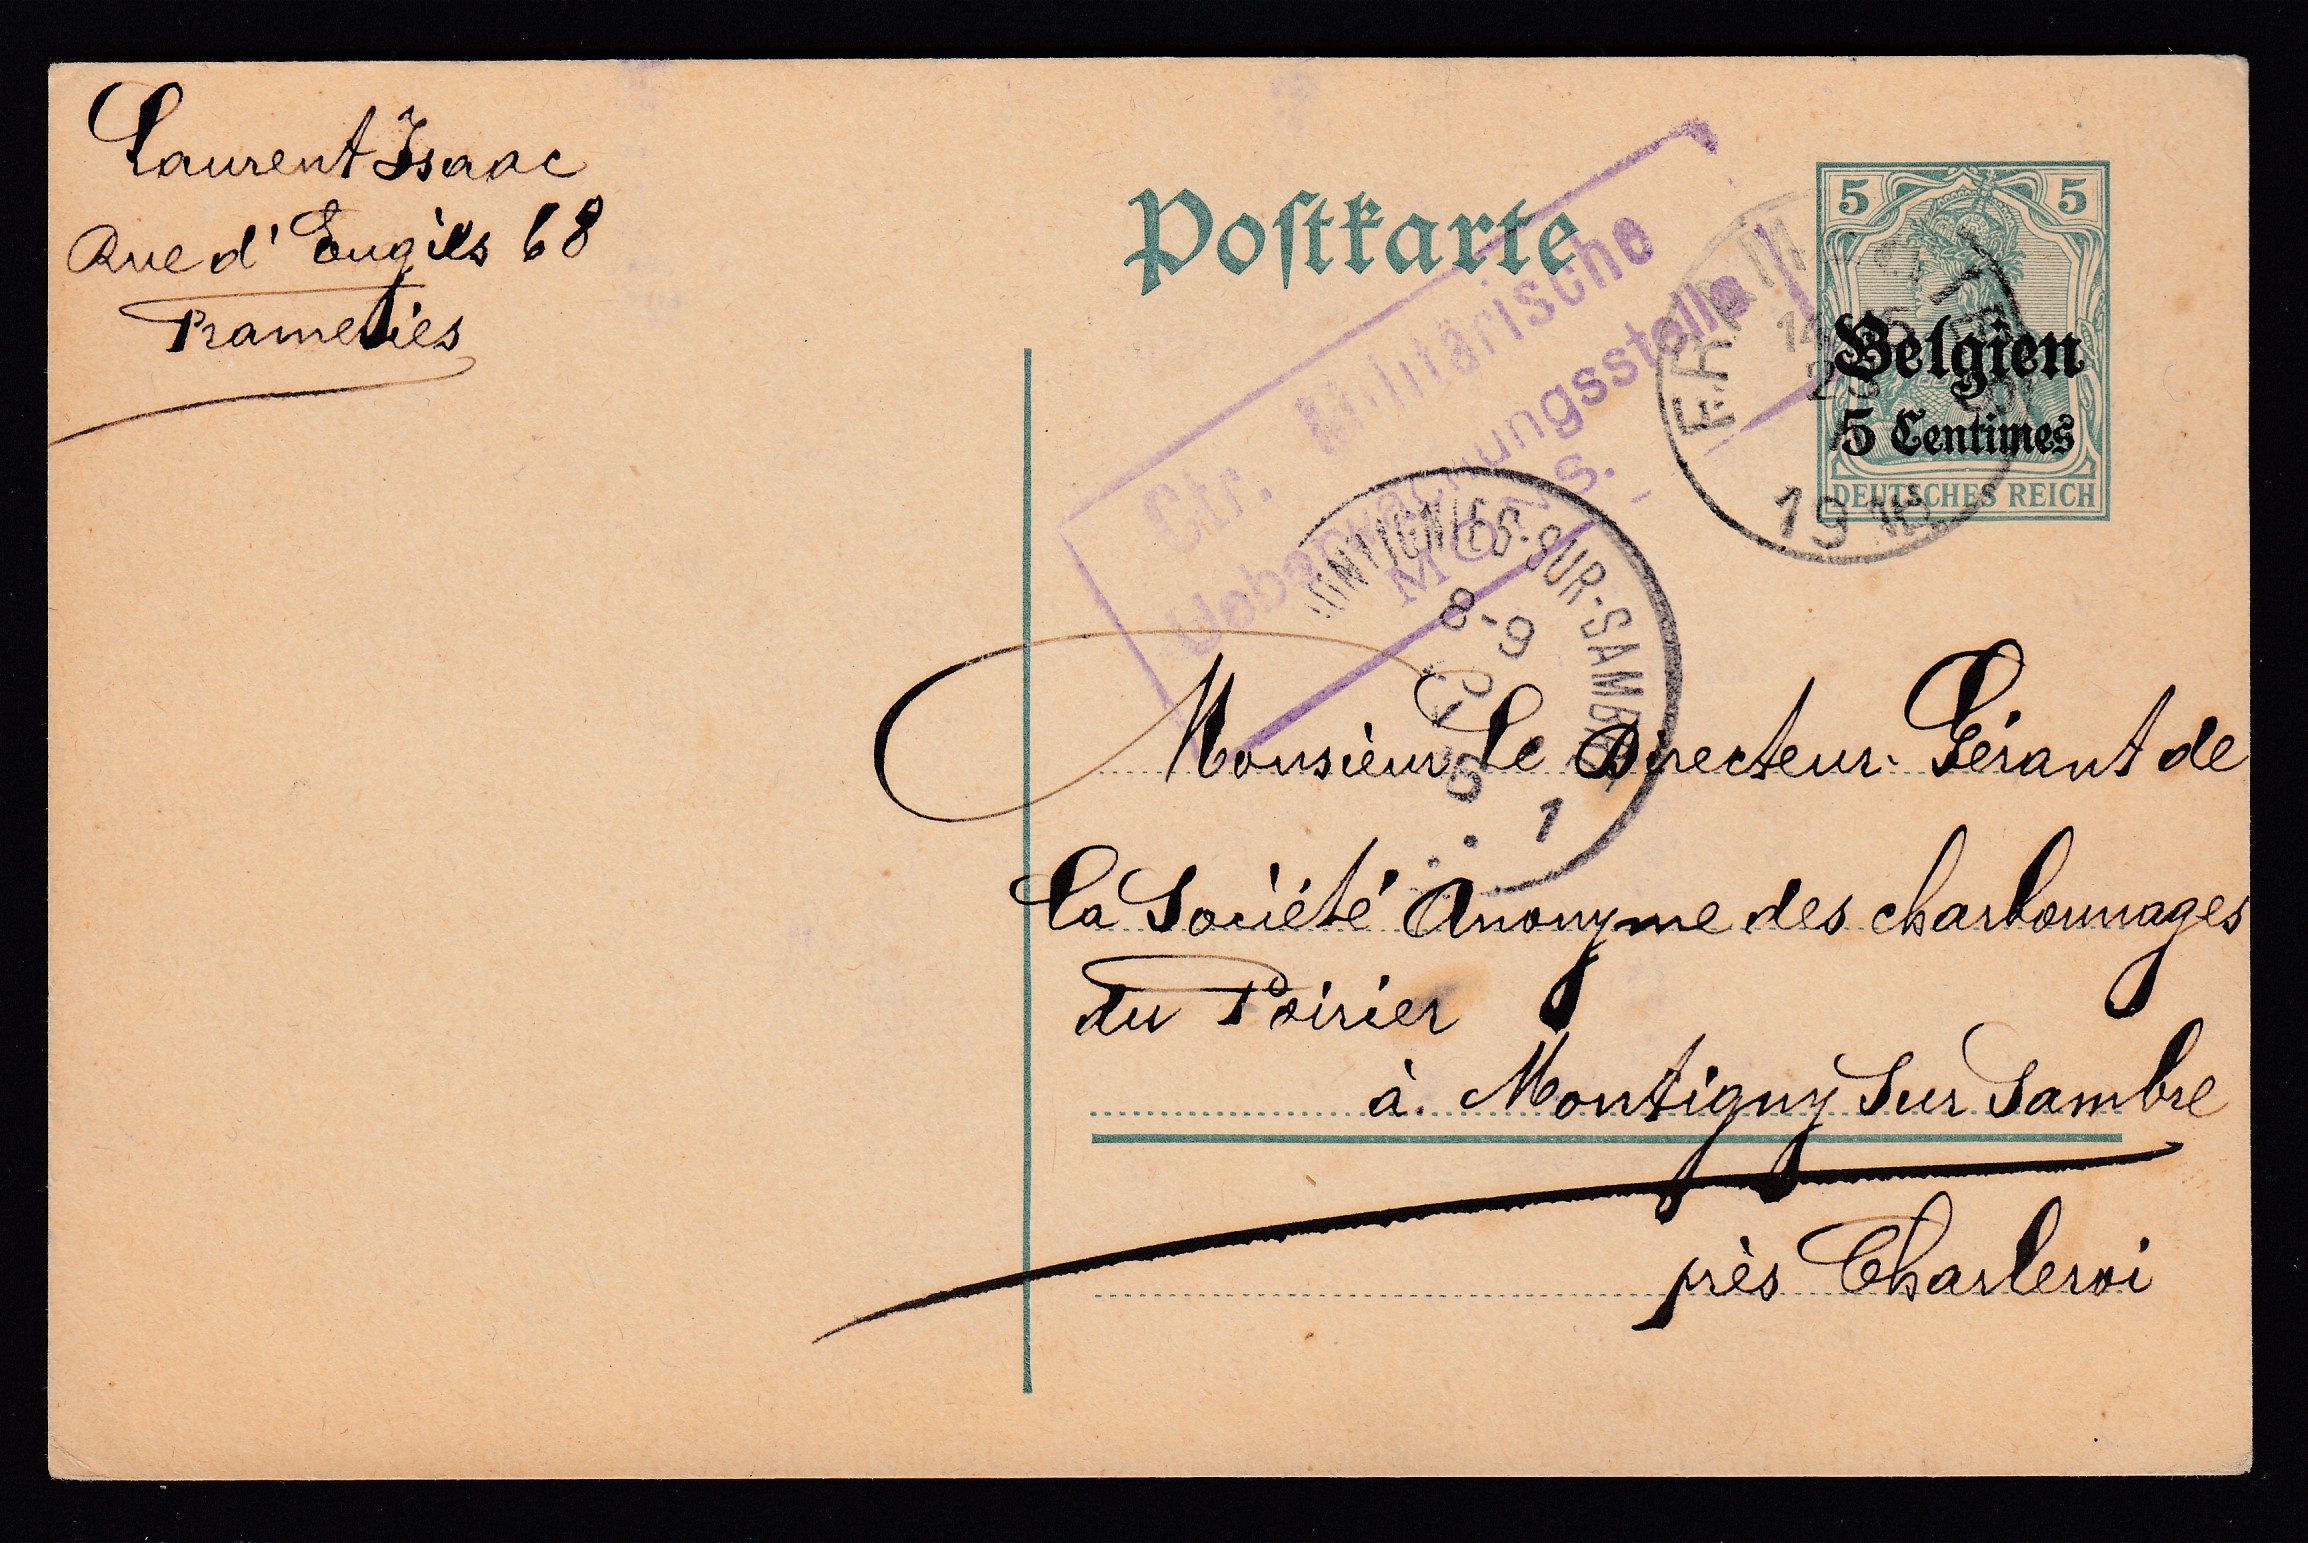 Laurent Isaac
Rue d' Eugies 68
Frameries
Postkarte
5 5
Belgien
5 Centimes
DEUTSCHES REICH
Str. Militärische
Ueberwachungsstelle
MONS.
FRAM
19 16
IGNIES-SUR-SAMBRE
8-9
1
Monsieur le Directeur-Gérant de
la Société Anonyme des charbonnages
du Poirier
à Montigny sur Sambre
près Charleroi